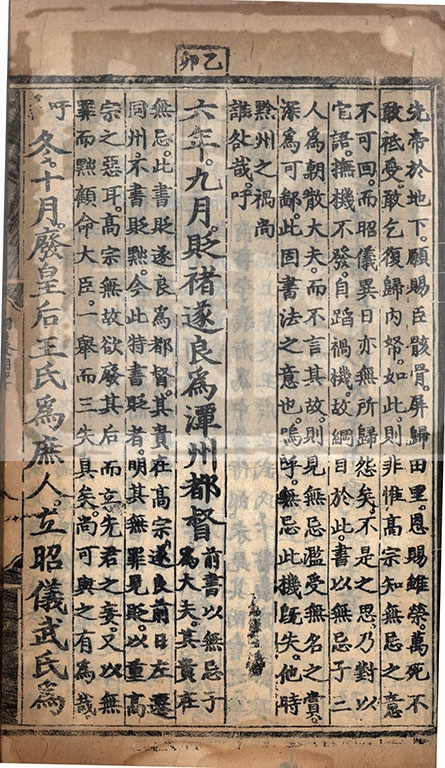 乙卯
先帝於地下。願賜臣骸骨。屏歸田里。恩賜雖榮。萬死不
敢祗受。敢乞復歸內帑。如此。則非惟高宗知無忌之意
不可回。而昭儀異日亦無所歸怨矣。不是之思。乃對以
它語。撫機不發。自蹈禍機。故綱目於此。書以無忌子二
人爲朝散大夫。而不言其故。則見無忌濫受無名之賞。
深爲可鄙。此固書法之意也。嗚呼。無忌此機旣失。他時
黔州之禍尚
誰咎哉。吁
六年。九月。貶褚遂良爲潭州都督
前書以無忌子
爲大夫。其責在
無忌。此書貶遂良爲都督。其責在高宗。遂良前日左遷
同州。不書貶黜。今此特書貶者。明其無罪見貶。以重高
宗之惡耳。高宗無故欲廢其后。而立先君之妾。又以無
罪而黜顧命大臣。一舉而三失具矣。尚可與之有爲哉。
吁
冬。十月。廢皇后王氏爲庶人。立昭儀武氏爲